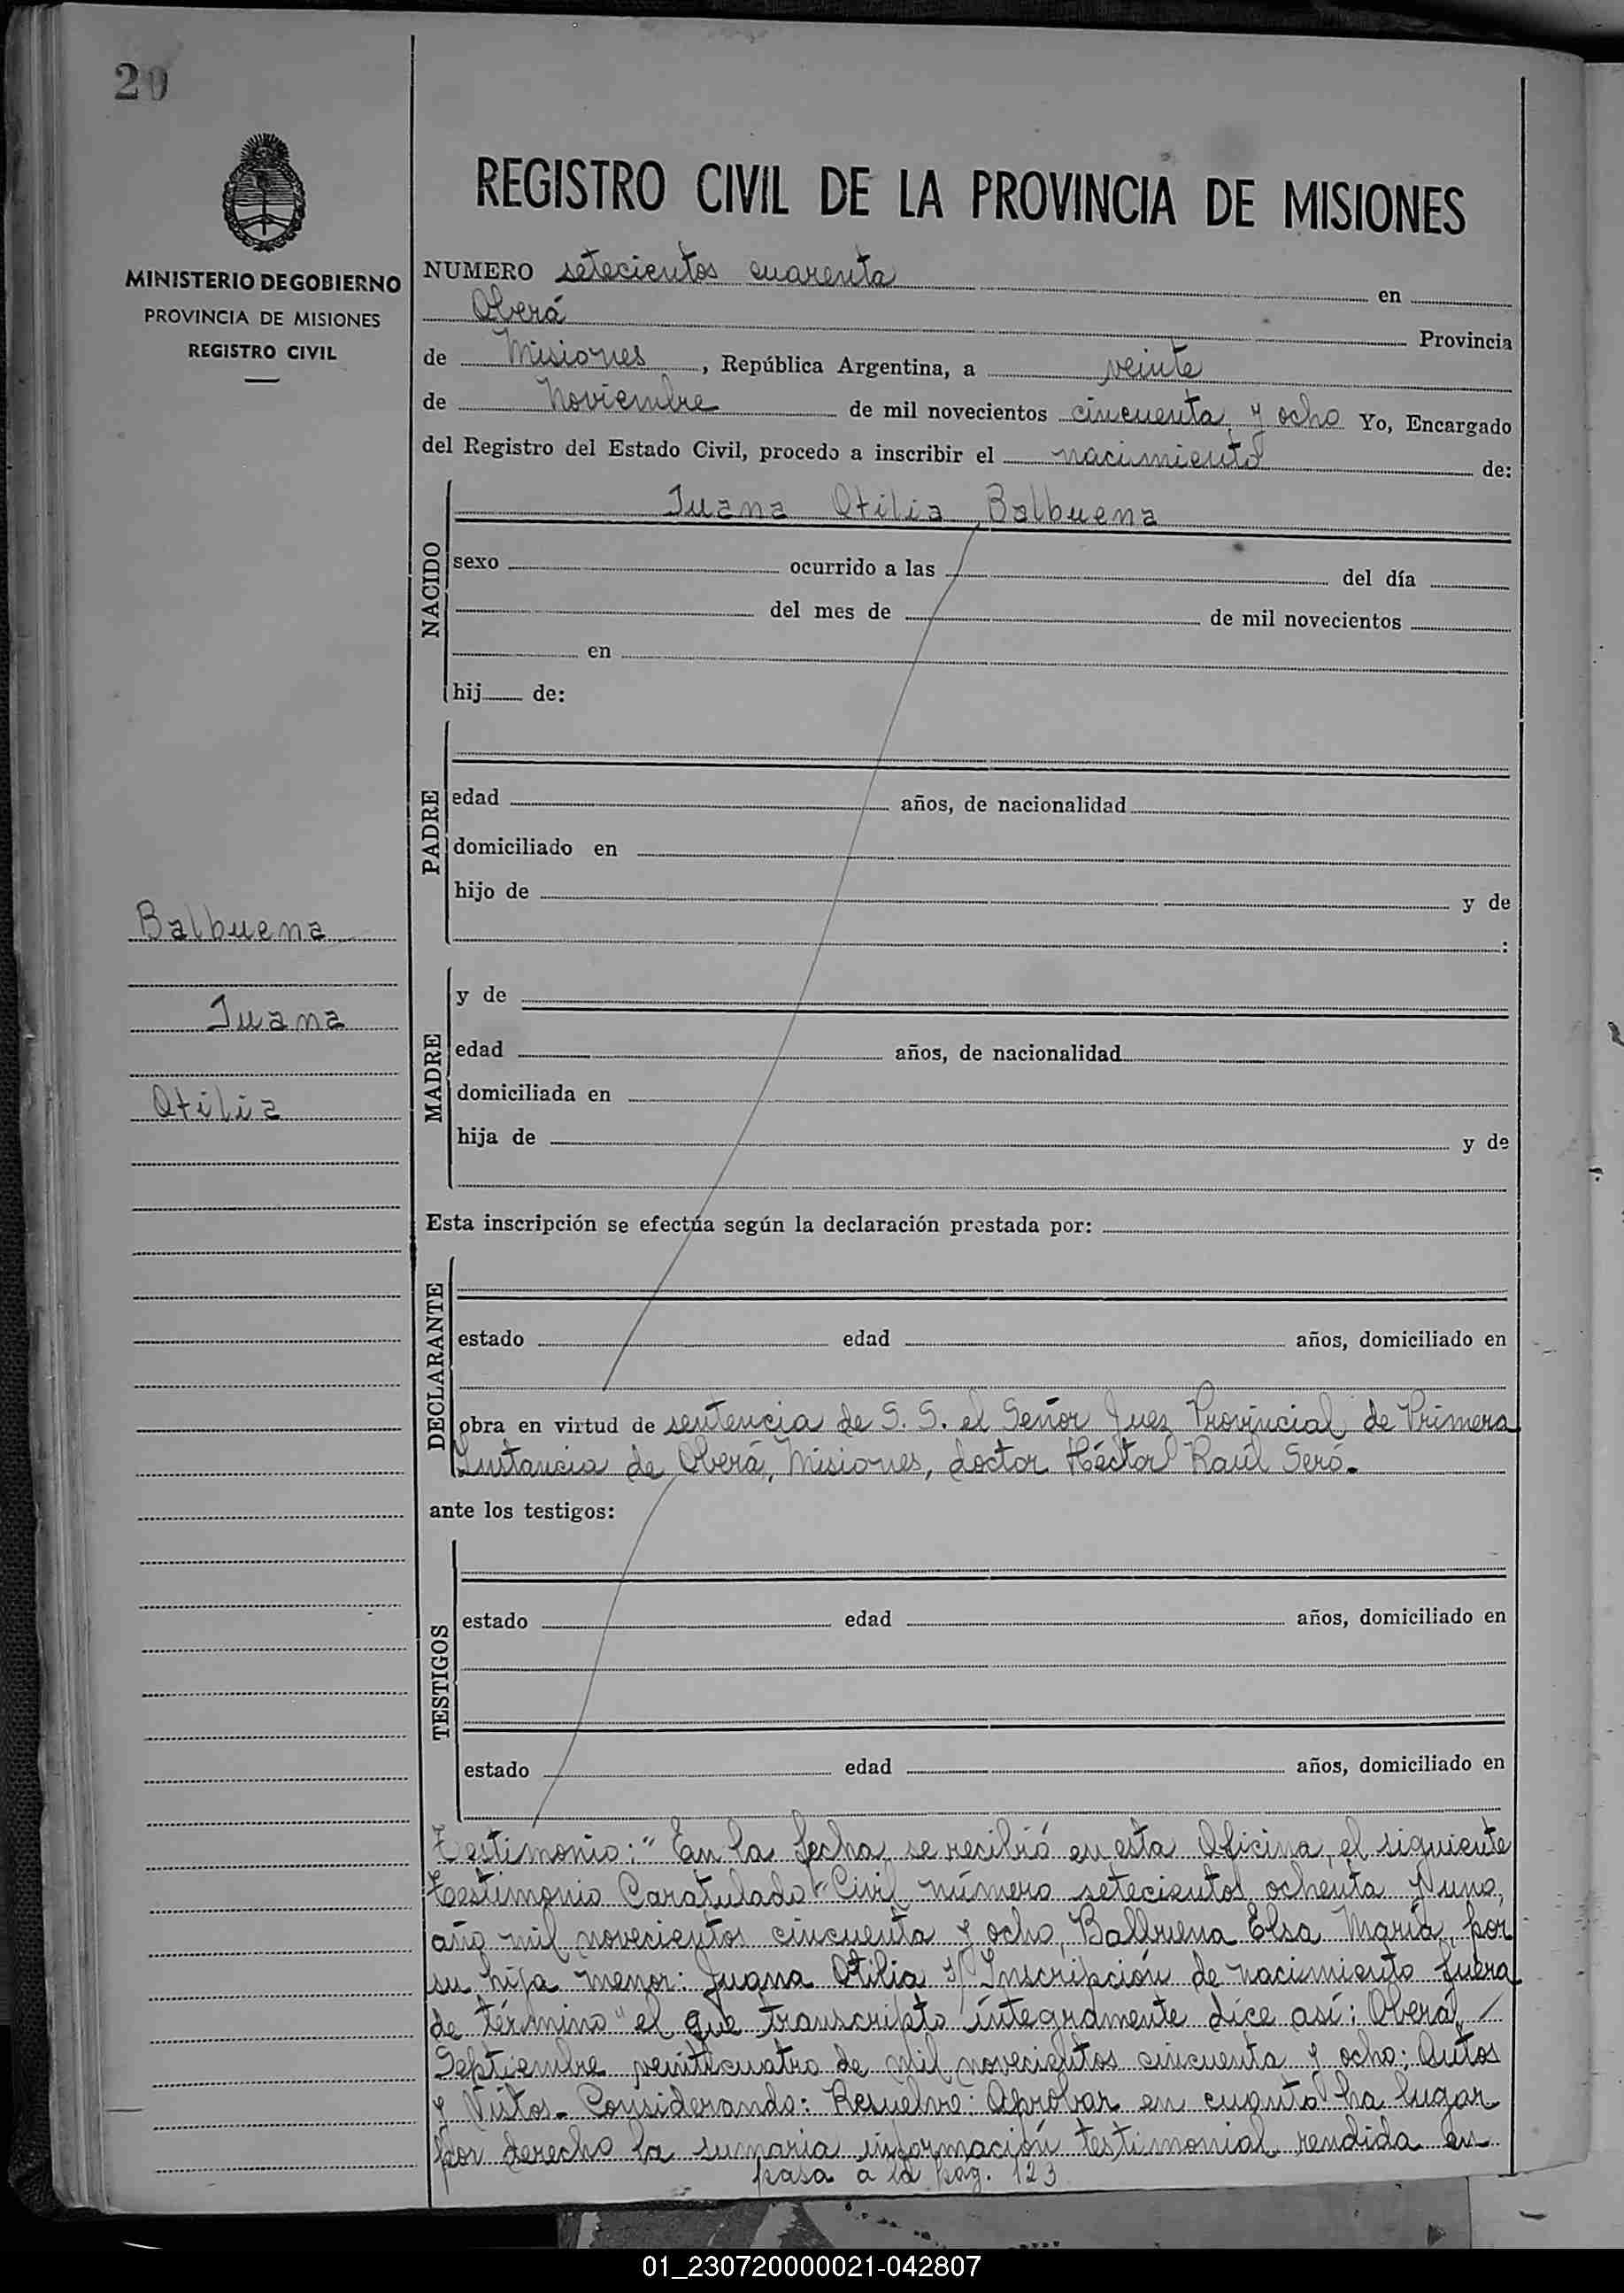 20
MINISTERIO DE GOBIERNO
PROVINCIA DE MISIONES
REGISTRO CIVIL
Balbuena
Juana
Otilia
REGISTRO CIVIL DE LA PROVINCIA DE MISIONES
NUMERO setecientos cuarenta en
Oberá Provincia
de Misiones, República Argentina, a veinte
de Noviembre de mil novecientos cincuenta y ocho Yo, Encargado
del Registro del Estado Civil, procedo a inscribir el nacimiento de:
NACIDO
Juana Otilia Balbuena
sexo ocurrido a las del día
del mes de de mil novecientos
en
hij de:
PADRE
edad años, de nacionalidad
domiciliado en
hijo de y de
:
MADRE
y de
edad años, de nacionalidad
domiciliada en
hija de y de
Esta inscripción se efectúa según la declaración prestada por:
DECLARANTE
estado edad años, domiciliado en
obra en virtud de sentencia de S. S. el Señor Juez Provincial de Primera
Instancia de Oberá, Misiones, doctor Héctor Raúl Seró.
ante los testigos:
TESTIGOS
estado edad años, domiciliado en
estado edad años, domiciliado en
Testimonio: "En la fecha se recibió en esta Oficina, el siguiente
testimonio Caratulado "Civil número setecientos ochenta y uno,
año mil novecientos cincuenta y ocho, Balbuena Elsa María, por
su hija menor: Juana Otilia s/ Inscripción de nacimiento fuera
de término" el que transcripto íntegramente dice así: Oberá, /
Septiembre veinticuatro de mil novecientos cincuenta y ocho; Autos
y Vistos. Considerando: Resuelvo: Aprobar en cuanto ha lugar
por derecho la sumaria información testimonial rendida en
pasa a la pág. 123
01_230720000021-042807